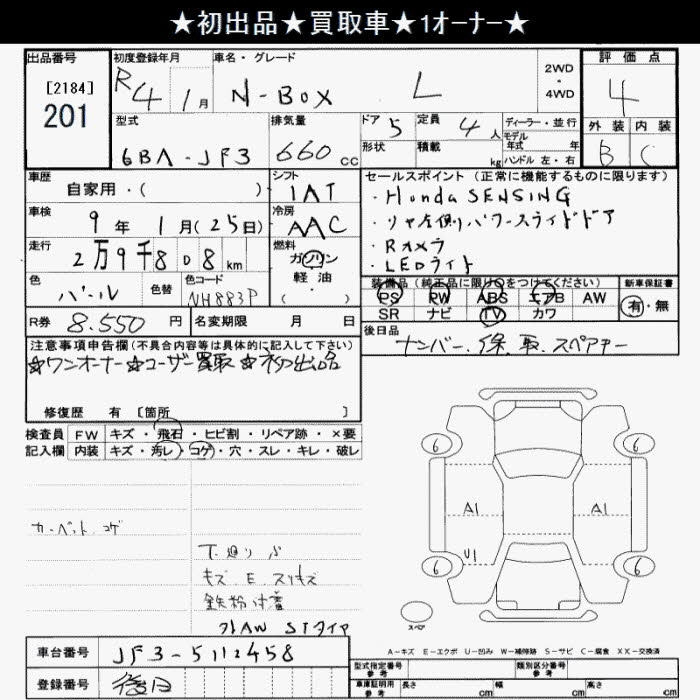 ★初出品★買取車★1オーナー★
出品番号 初度登録年月 車名・グレード 評価点
[2184]
201
R4 1月 N-BOX L 2WD・4WD 4
型式 排気量 ドア 5 定員 4人 ディーラー・並行 外装 内装
モデル年式 年
6BA-JF3 660cc 形状 積載 kg ハンドル 左・右 B C
車歴 シフト セールスポイント(正常に機能するものに限ります)
自家用・( ) IAT ・Honda SENSING
車検 冷房 ・リヤ左側パワースライドドア
9年1月(25日) AAC ・Rカメラ
走行 燃料 ・LEDライト
2万9千808km ガソリン
軽油
( )
色 色替 色コード 装備品(純正品に限り○をつけてください) 新車保証書
パール NH883P PS PW ABS エアB AW 有・無
SR ナビ TV カワ
R券 8.550円 名変期限 月 日 後日品
ナンバー.保.取.スペアキー
注意事項申告欄(不具合内容等は具体的に記入して下さい)
☆ワンオーナー☆ユーザー買取☆初出品
修復歴 有 [箇所 ]
検査員 FW キズ・飛石・ヒビ割・リペア跡・×要
記入欄 内装 キズ・汚レ・コゲ・穴・スレ・キレ・破レ
6 6
A1 A1
U1
6 6
スペア
カーペット コゲ
下廻り
キズ E スリキズ
鉄粉付着
社外AW STタイヤ
A-キズ E-エクボ U-凹み W-補修跡 S-サビ C-腐食 XX-交換済
車台番号 JF3-5112458
登録番号 後日
型式指定番号 参考 類別区分番号 参考
車庫証明用 参考 長さ cm 幅 cm 高さ cm